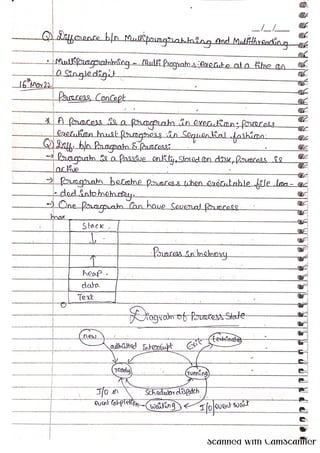 __/__/__
Q) Difference b/n Multiprogramming and Multithreading
• Multiprogramming - Multi Programs execute at a time on
a Single digit
16th Mar 22
Process Concept
* A process is a program in execution; process
execution must progress in sequential fashion.
Q) Diff. b/n Program & Process:
→ Program is a passive entity, stored on disk, Process is
active
→ Program become process when executable file loa-
ded into memory.
→ One Program can have Several Process
max
Stack
Process in memory
heap.
data
Text
0
Diagram of Process State
new
admitted Interrupt Exit terminated
ready
running
I/O or Scheduler dispatch
event completion waiting I/O event wait
Scanned with CamScanner